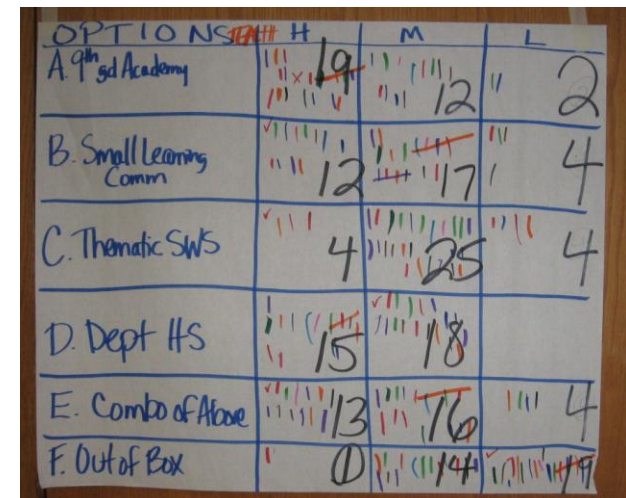 OPTIONS H M L
A. 9th gd Academy 19 12 2
B. Small Learning
Comm 12 17 4
C. Thematic SWS 4 25 4
D. Dept HS 15 18
E. Combo of Above 13 16 4
F. Out of Box 1 14 19